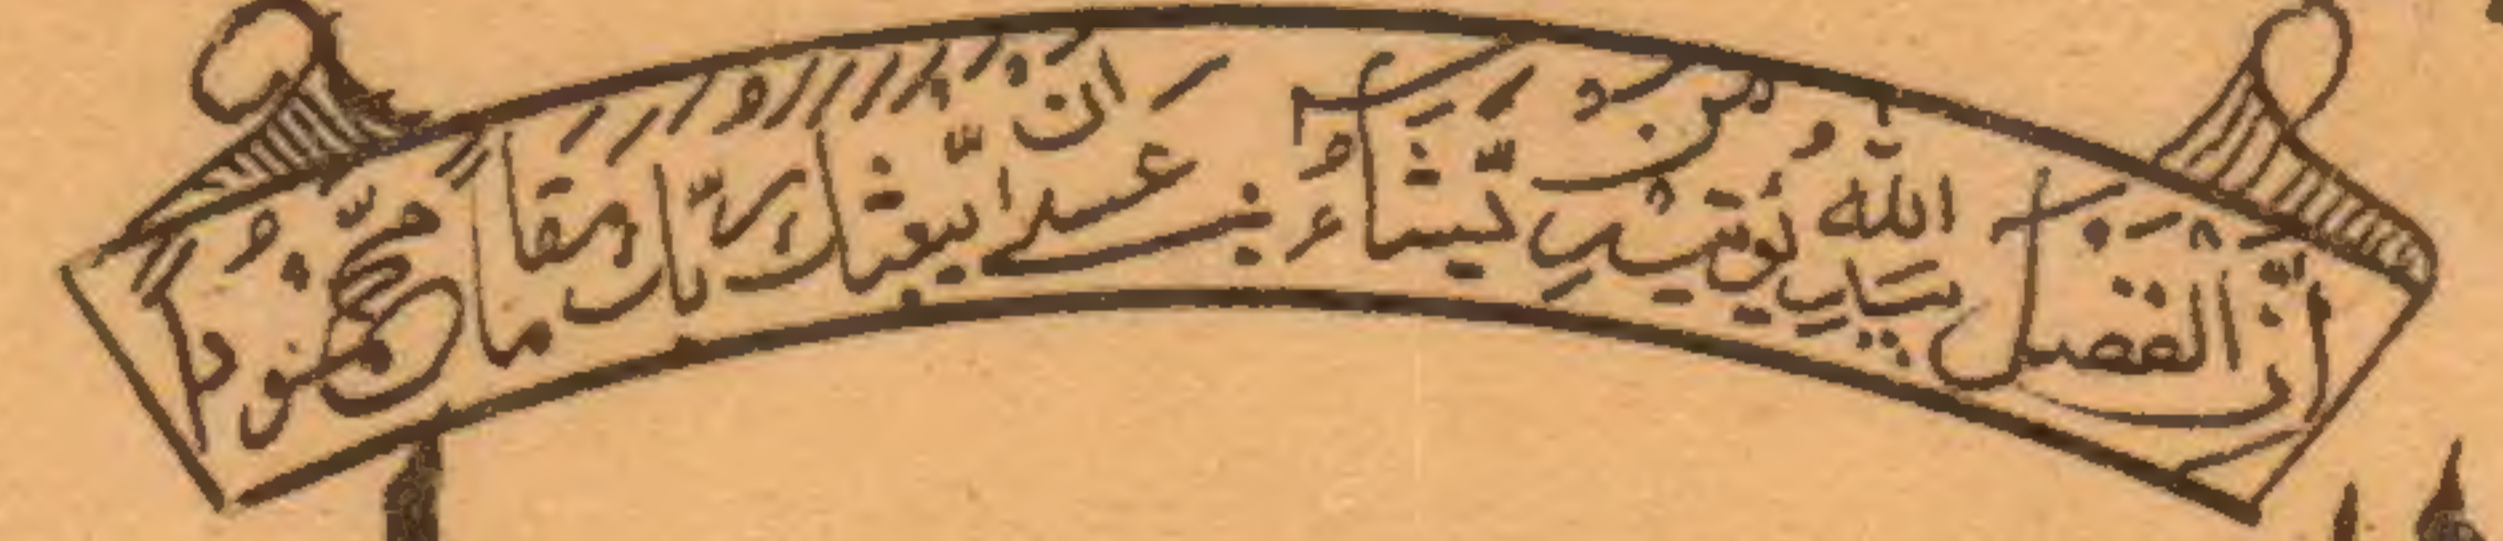 اِنَّ الْفَضْلَ بِيَدِ اللّٰهِ يُؤْتِيْهِ مَنْ يَّشَآءُ عَسٰى اَنْ يَّبْعَثَكَ رَبُّكَ مَقَامًا مَّحْمُوْدًا